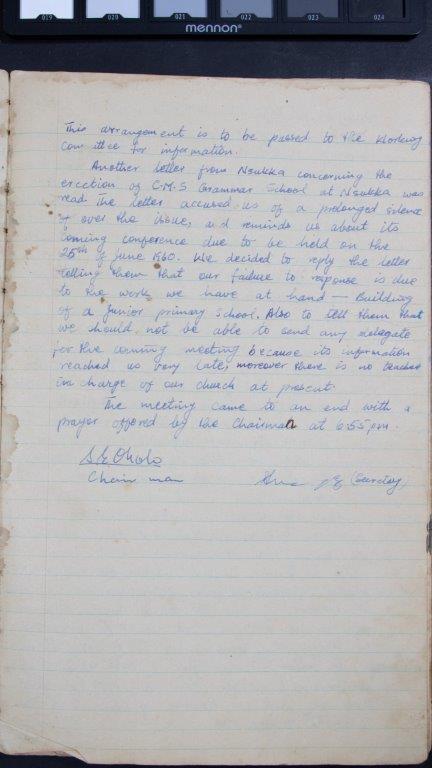 019 020 021 022 023 024
mennon
This arrangement is to be passed to the Working
Committee for information.
Another letter from Nsukka concerning the
erection of C.M.S Grammar School at Nsukka was
read. The letter accused us of a prolonged silence
of over the issue, and reminds us about its
coming conference due to be held on the
25th of June 1960. We decided to reply the letter
telling them that our failure to response is due
to the work we have at hand — Building
of a Junior primary school. Also to tell them that
we should not be able to send any delegate
for the coming meeting because its information
reached us very late; moreover there is no teacher
in charge of our church at present.
The meeting came to an end with a
prayer offered by the Chairman at 6.55pm.
S.E Okolo
Chairman (Secretary)